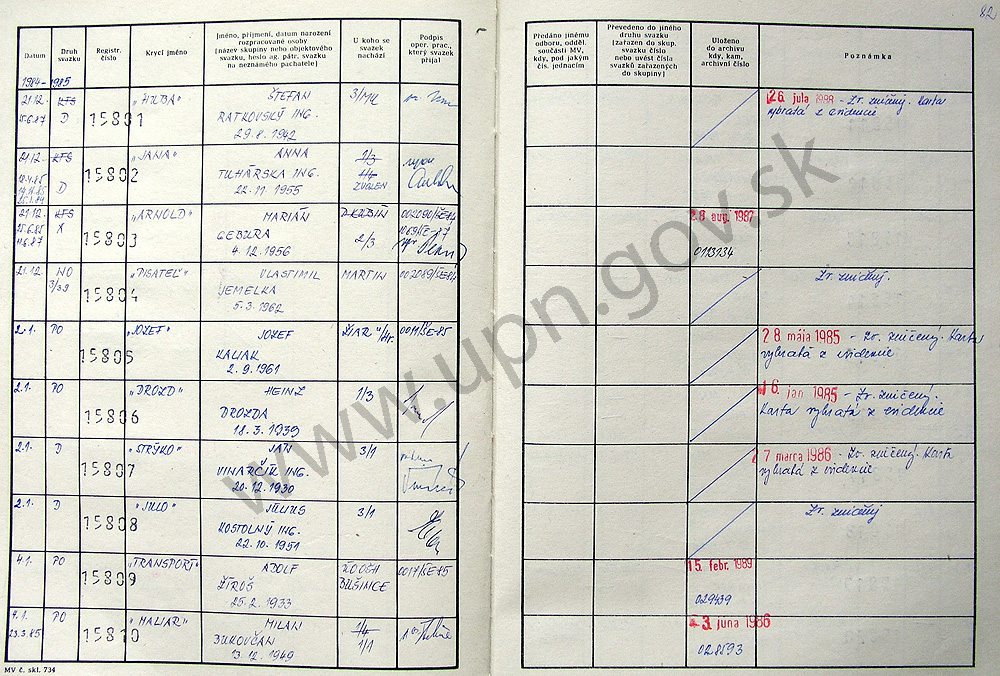 82
Datum
Druh svazku
Registr. číslo
Krycí jméno
Jméno, příjmení, datum narození
rozpracované osoby
(název skupiny nebo objektového
svazku, heslo ag. pátr. svazku
na neznámého pachatele)
U koho se
svazek
nachází
Podpis
oper. prac.,
který svazek
přijal
Předáno jinému
odboru, odděl.
součásti MV,
kdy, pod jakým
čís. jednacím
Převedeno do jiného
druhu svazku
(zařazen do skup.
svazku číslo
nebo uvést čísla
svazků zařazených
do skupiny)
Uloženo
do archivu
kdy, kam,
archivní číslo
Poznámka
1984-1985
21.12. KTS "HUBA" ŠTEFAN 3/MK
25.6.87 D 15801 RATKOVSKÝ ING.
29.8.1942
26. júla 1988 - Zv. zničený. Karta
vybratá z evidencie
21.12. KTS "JANA" ANNA 2/3
15802 TUHÁRSKA ING.
D 22.11.1955 ZVOLEN
21.12. KTS "ARNOLD" MARIÁN D.KUBÍN
25.6.85 X 15803 GEBURA 2/3
11.6.87 4.12.1956
28. aug. 1987
0113134
21.12. NO "PISATEĽ" VLASTIMIL MARTIN 002089/ŠE-84
3/39 15804 JEMELKA
5.3.1962
Zv. zničený.
2.1. PO "JOZEF" JOZEF ŽIAR n/Hr. 0011/ŠE-85
15805 KALIAK
2.9.1961
28. mája 1985 - Zv. zničený. Karta
vybratá z evidencie
2.1. PO "DROZD" HEINZ 1/3
15806 DROZDA
18.3.1939
16. jan 1985 - Zv. zničený.
Karta vybratá z evidencie
2.1. D "STRÝKO" JÁN 3/1
15807 VINARČÍK ING.
20.12.1930
27 marca 1986 - Zv. zničený. Karta
vybratá z evidencie
2.1. D "JULO" JÚLIUS 3/1
15808 KOSTOLNÝ ING.
22.10.1951
Zv. zničený
4.1. PO "TRANSPORT" ADOLF 0017/ŠE-85
15809 ŽÍROŠ BUŠINCE
25.2.1933
15. febr. 1989
029439
9.1. PO "MALIAR" MILAN 1/4
23.3.85 15810 BUKOVČAN 1/1
13.12.1949
-3. júna 1986
028593
MV č. skl. 734
www.upn.gov.sk